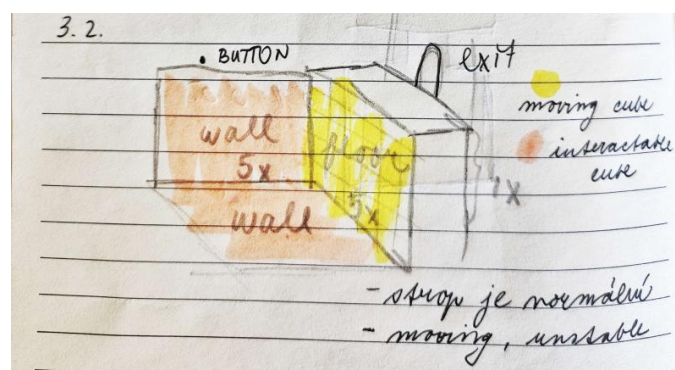 3.2.
BUTTON
exit
moving cube
interactable
cube
wall
5x
floor
5x
1x
wall
- strop je normální
- moving, unstable